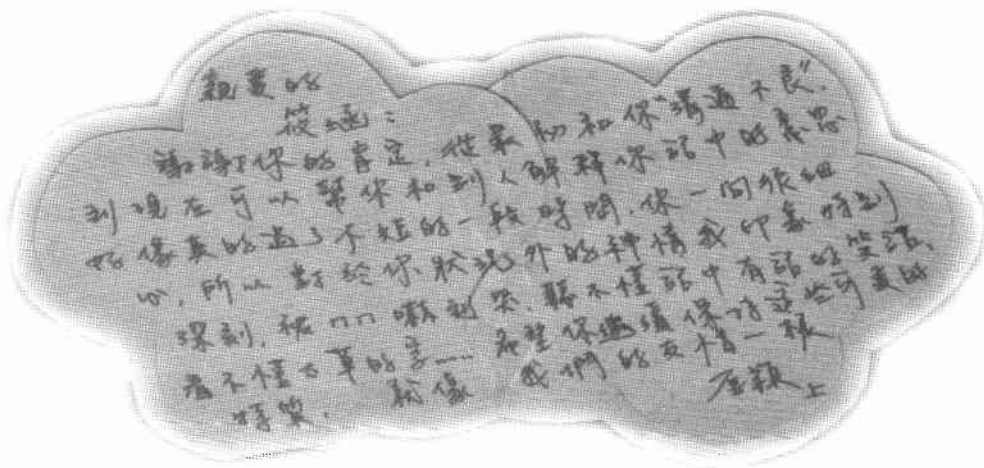 親愛的
筱涵：
謝謝你的肯定，從最初和你"溝通不良"，
到現在可以幫你和別人解釋你話中的意思
好像真的過了不短的一段時間，你一向很細
心，所以對於你狀況外的神情我印象特別
深刻，被ㄇㄇ嚇到哭、聽不懂話中有話的笑話、
看不懂古草的字…… 希望你繼續保持這些可愛的
特質，就像我們的友情一樣
上